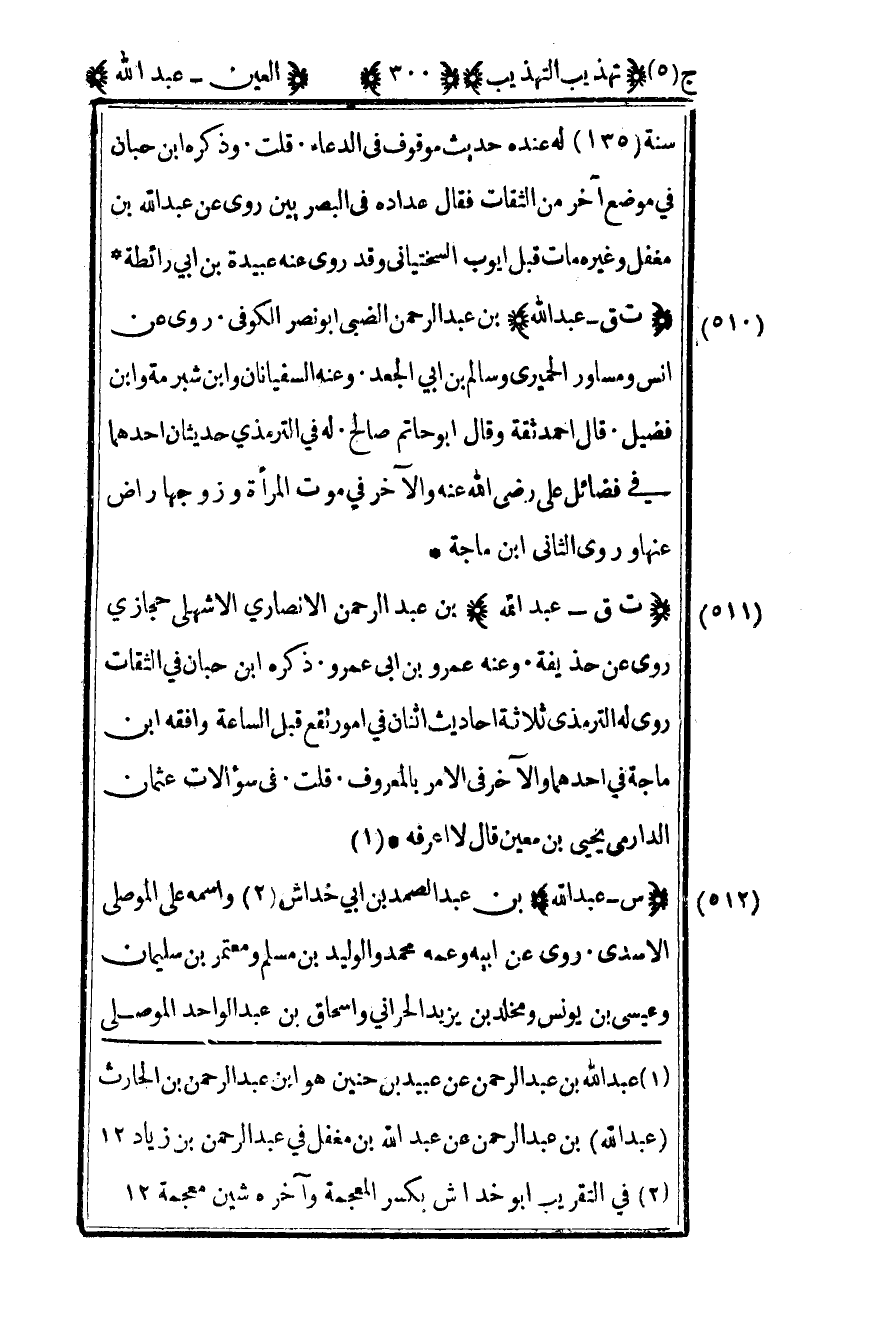 ج(٥) ﴿تهذيب التهذيب﴾ ﴿٣٠٠﴾ ﴿العين - عبد الله﴾
سنة (١٣٥) له عنده حديث موقوف فى الدعاء · قلت · وذكره ابن حبان
في موضع آخر من الثقات فقال عداده فى البصريين روى عن عبدالله بن
مغفل وغيره مات قبل ايوب السختيانى وقد روى عنه عبيدة بن ابي رائطة *
(٥١٠) ﴿ت ق - عبدالله﴾ بن عبدالرحمن الضبى ابونصر الكوفى · روى عن
انس ومساور الحميرى وسالم بن ابي الجعد · وعنه السفيانان وابن شبرمة وابن
فضيل · قال احمد ثقة وقال ابوحاتم صالح · له في الترمذي حديثان احدهما
في فضائل على رضى الله عنه والآخر في موت المرأة وزوجها راض
عنها وروى الثانى ابن ماجة *
(٥١١) ﴿ت ق - عبد الله﴾ بن عبد الرحمن الانصاري الاشهلى حجازي
روى عن حذيفة · وعنه عمرو بن ابى عمرو · ذكره ابن حبان في الثقات
روى له الترمذى ثلاثة احاديث اثنان في امور تقع قبل الساعة وافقه ابن
ماجة في احدهما والآخر فى الامر بالمعروف · قلت · فى سؤالات عثمان
الدارمى يحيى بن معين قال لا اعرفه * (١)
(٥١٢) ﴿س - عبدالله﴾ بن عبدالصمد بن ابي خداش (٢) واسمه على الموصلى
الاسدى · روى عن ابيه وعمه محمد والوليد بن مسلم ومعتمر بن سليمان
وعيسى بن يونس ومخلد بن يزيد الحراني واسحاق بن عبدالواحد الموصلى
(١) عبدالله بن عبدالرحمن عن عبيد بن حنين هو ابن عبدالرحمن بن الحارث
(عبدالله) بن عبدالرحمن عن عبد الله بن مغفل في عبدالرحمن بن زياد ١٢
(٢) في التقريب ابو خداش بكسر المعجمة وآخره شين معجمة ١٢